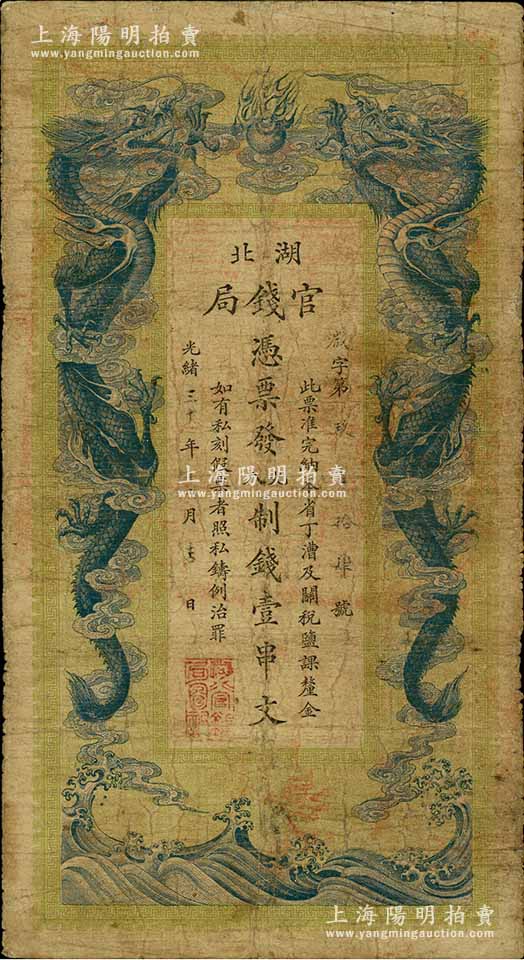 上海陽明拍賣
www.yangmingauction.com
上海陽明拍賣
www.yangmingauction.com
湖北
官錢局
字第 拾 號
此票准完納 省丁漕及關稅鹽課釐金
憑票發 制錢壹串文
如有私刻假 者照私鑄例治罪
光緒三十 年 月 日
上海陽明拍賣
www.yangmingauction.com
上海陽明拍賣
www.yangmingauction.com